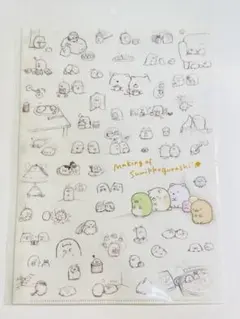 making of
Sumikkogurashi